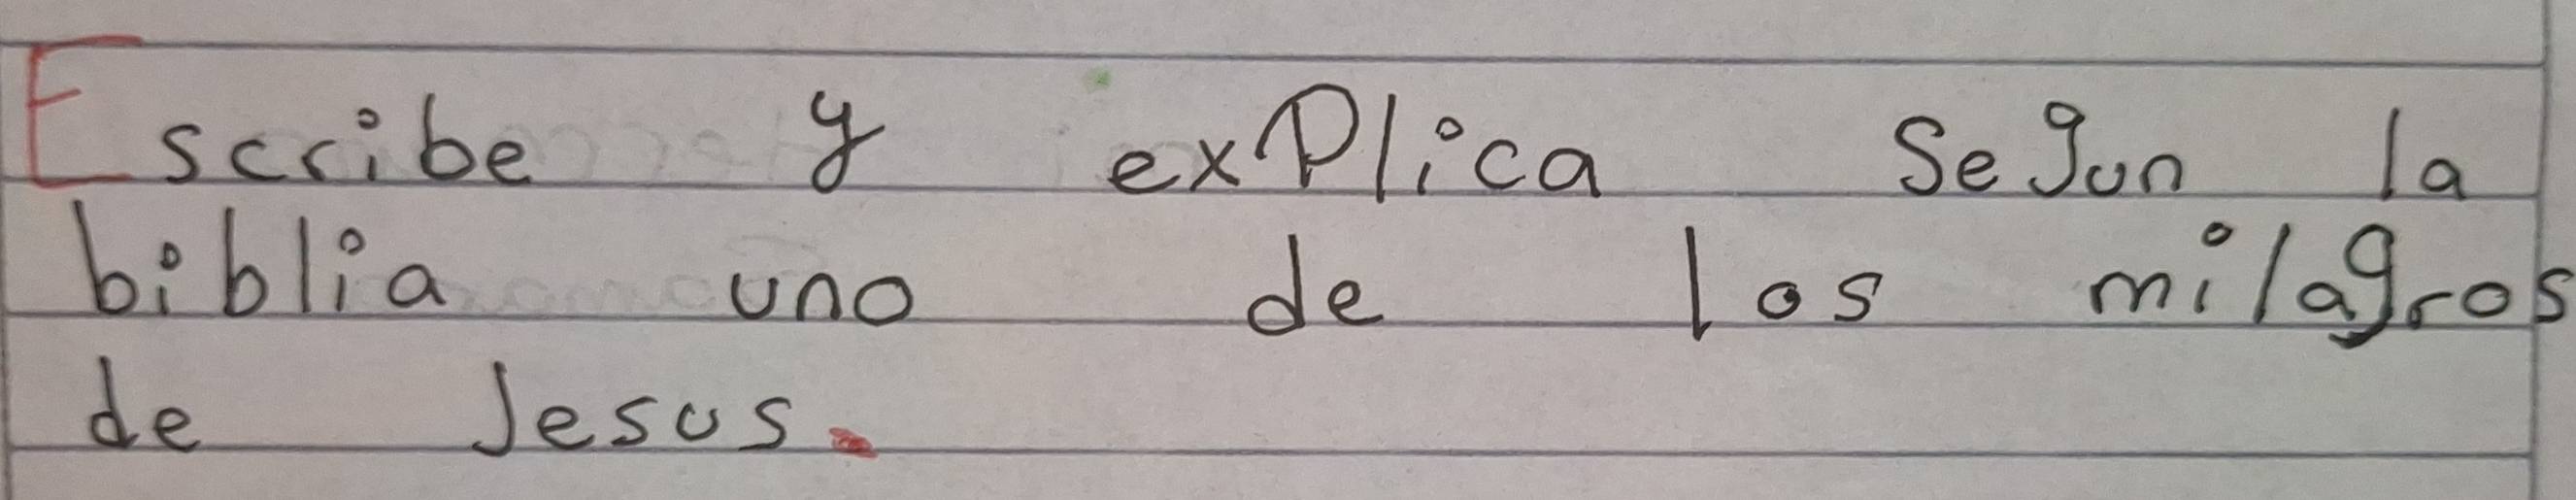 Escribe y exPlica Segun la
biblia uno de los milagros
de Jesus.